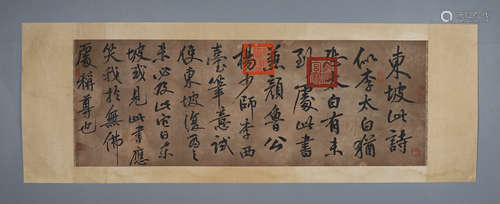 東坡此詩
似李太白猶
恐太白有未
到處此書
兼顏魯公
楊少師李西
臺筆意試
使東坡復為之
未必及此它日東
坡或見此書應
笑我於無佛
處稱尊也